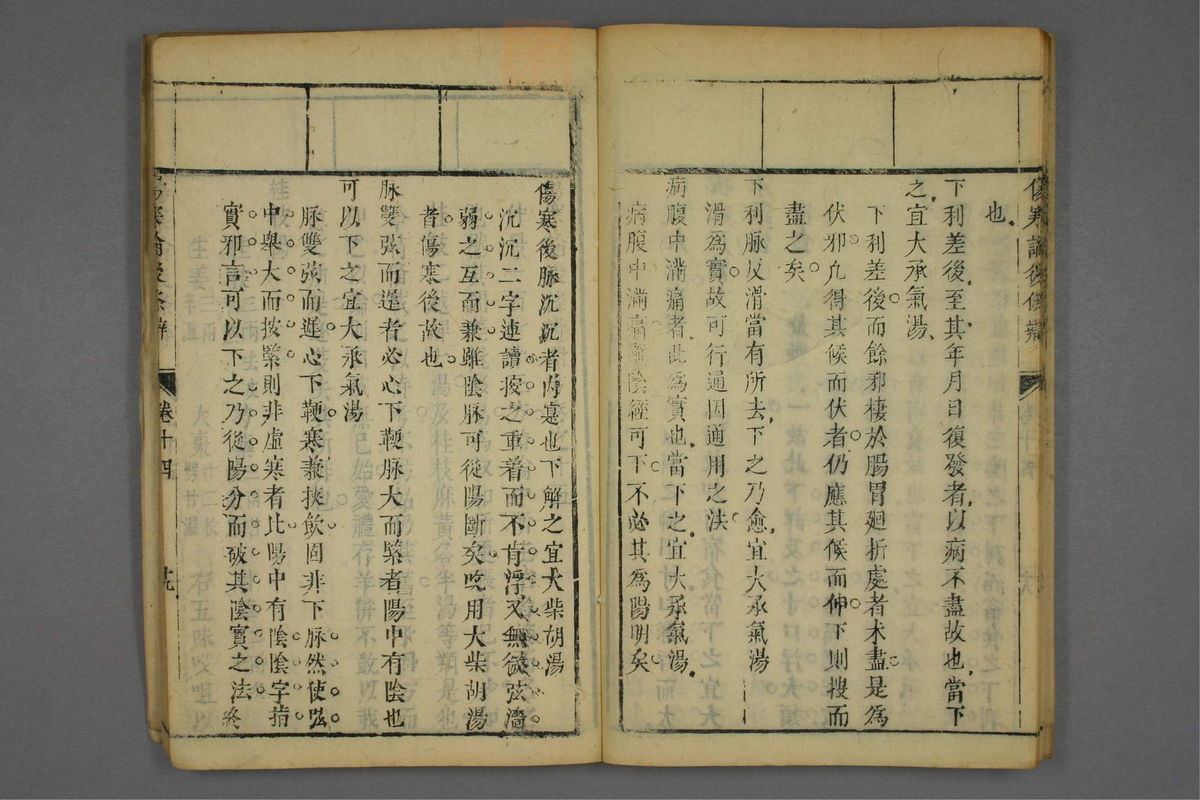 傷寒論後條辨
也
下利差後至其年月日復發者以病不盡故也當下
之宜大承氣湯
下利差後而餘邪棲於腸胃廻折處者未盡是為
伏邪凢得其候而伏者仍應其候而伸下則搜而
盡之矣
下利脉反滑當有所去下之乃愈宜大承氣湯
滑爲實故可行通因通用之法
病腹中滿痛者此爲實也當下之宜大承氣湯
病腹中滿痛雖陰經可下不必其爲陽明矣
傷寒後脉沉沉者內寔也下解之宜大柴胡湯
沉沉二字連讀按之重着而不肯浮又無微弦濇
弱之互而兼雖陰脉可從陽斷矣吃用大柴胡湯
者傷寒後故也
脉雙弦而遲者必心下鞕脉大而緊者陽中有陰也
可以下之宜大承氣湯
脉雙弦而遲心下鞕寒兼挾飲固非下脉然使弦
中舉大而按緊則非虛寒者比陽中有陰陰字指
實邪言可以下之乃從陽分而破其陰實之法終
傷寒論後條辨
卷十四